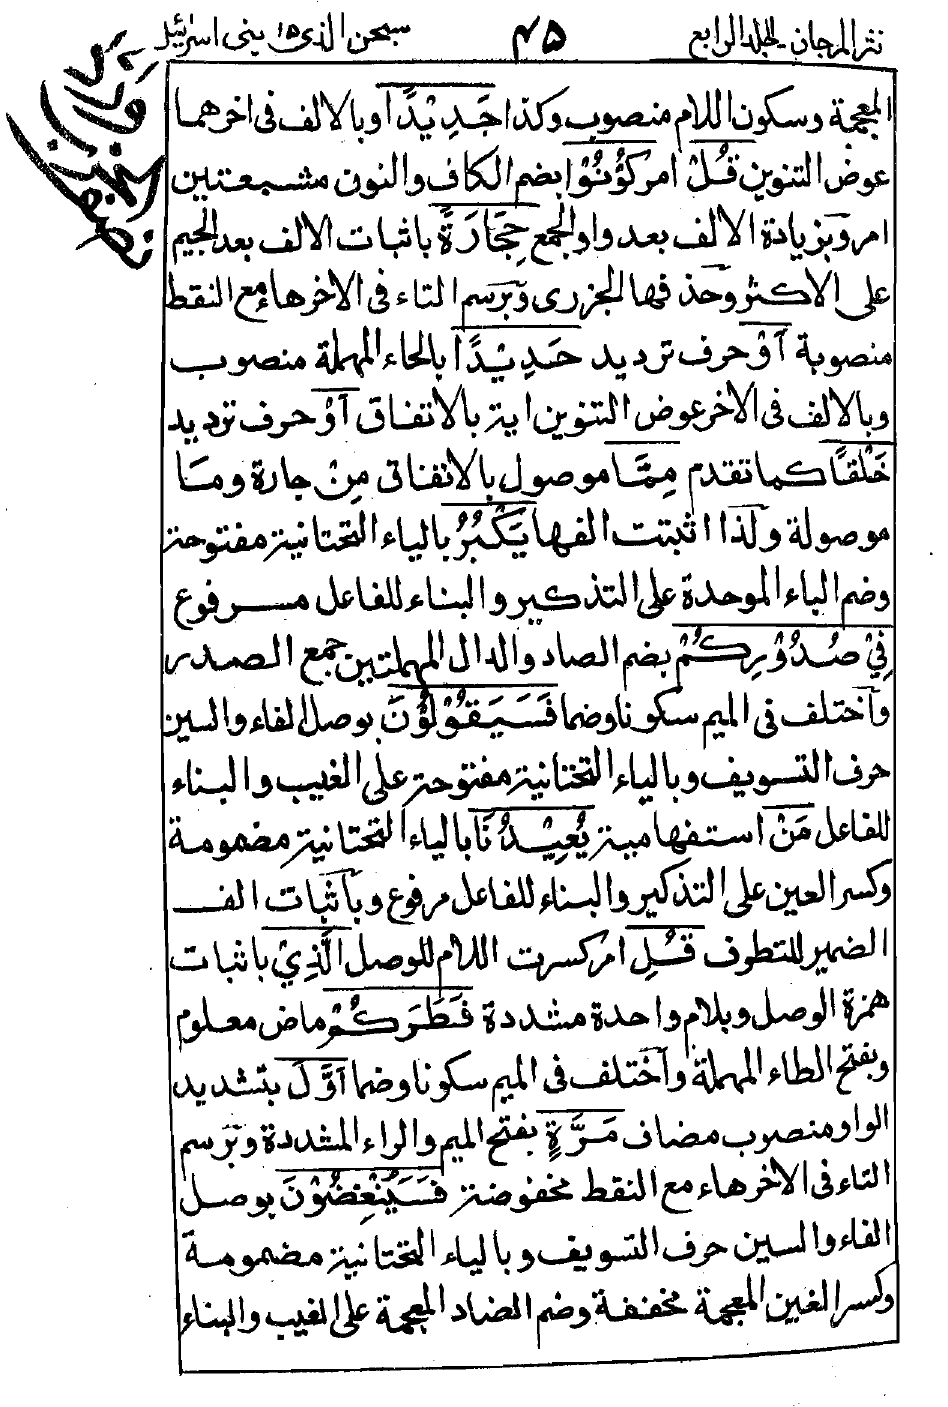 نثر المرجان الجلد الرابع
٤٥
سبحن الذي ١٥ بنی اسرائیل
المعجمة وسكون اللام منصوب وكذا جَدِيْدًا وبالالف فى اخرهما
عوض التنوين قُلْ امر كُوْنُوْا بضم الكاف والنون مشبعتين
امر وبزيادة الالف بعد واو الجمع حِجَارَةً باثبات الالف بعد الجيم
على الاكثر وحذفها الجزرى وبرسم التاء فى الاخرهاء مع النقط
منصوبة اَوْ حرف ترديد حَدِيْدًا بالحاء المهملة منصوب
وبالالف فى الاخر عوض التنوين اية بالاتفاق اَوْ حرف ترديد
خَلْقًا كما تقدم مِمَّا موصول بالاتفاق مِنْ جارة ومَا
موصولة ولذا اثبتت الفها يَكْبُرُ بالياء التحتانية مفتوحة
وضم الباء الموحدة على التذكير والبناء للفاعل مرفوع
فِيْ صُدُوْرِكُمْ بضم الصاد والدال المهملتين جمع الصدر
واختلف فى الميم سكونا وضما فَسَيَقُوْلُوْنَ بوصل الفاء والسين
حرف التسويف وبالياء التحتانية مفتوحة على الغيب والبناء
للفاعل مَنْ استفهامية يُعِيْدُنَا بالياء التحتانية مضمومة
وكسر العين على التذكير والبناء للفاعل مرفوع وباثبات الف
الضمير للتطرف قُلِ امر كسرت اللام للوصل الَّذِيْ باثبات
همزة الوصل وبلام واحدة مشددة فَطَرَكُمْ ماض معلوم
وبفتح الطاء المهملة واختلف فى الميم سكونا وضما اَوَّلَ بتشديد
الواو منصوب مضاف مَرَّةٍ بفتح الميم والراء المشددة وبرسم
التاء فى الاخرهاء مع النقط مخفوضة فَسَيُنْغِضُوْنَ بوصل
الفاء والسين حرف التسويف وبالياء التحتانية مضمومة
وكسر الغين المعجمة مخففة وضم الضاد المعجمة على الغيب والبناء